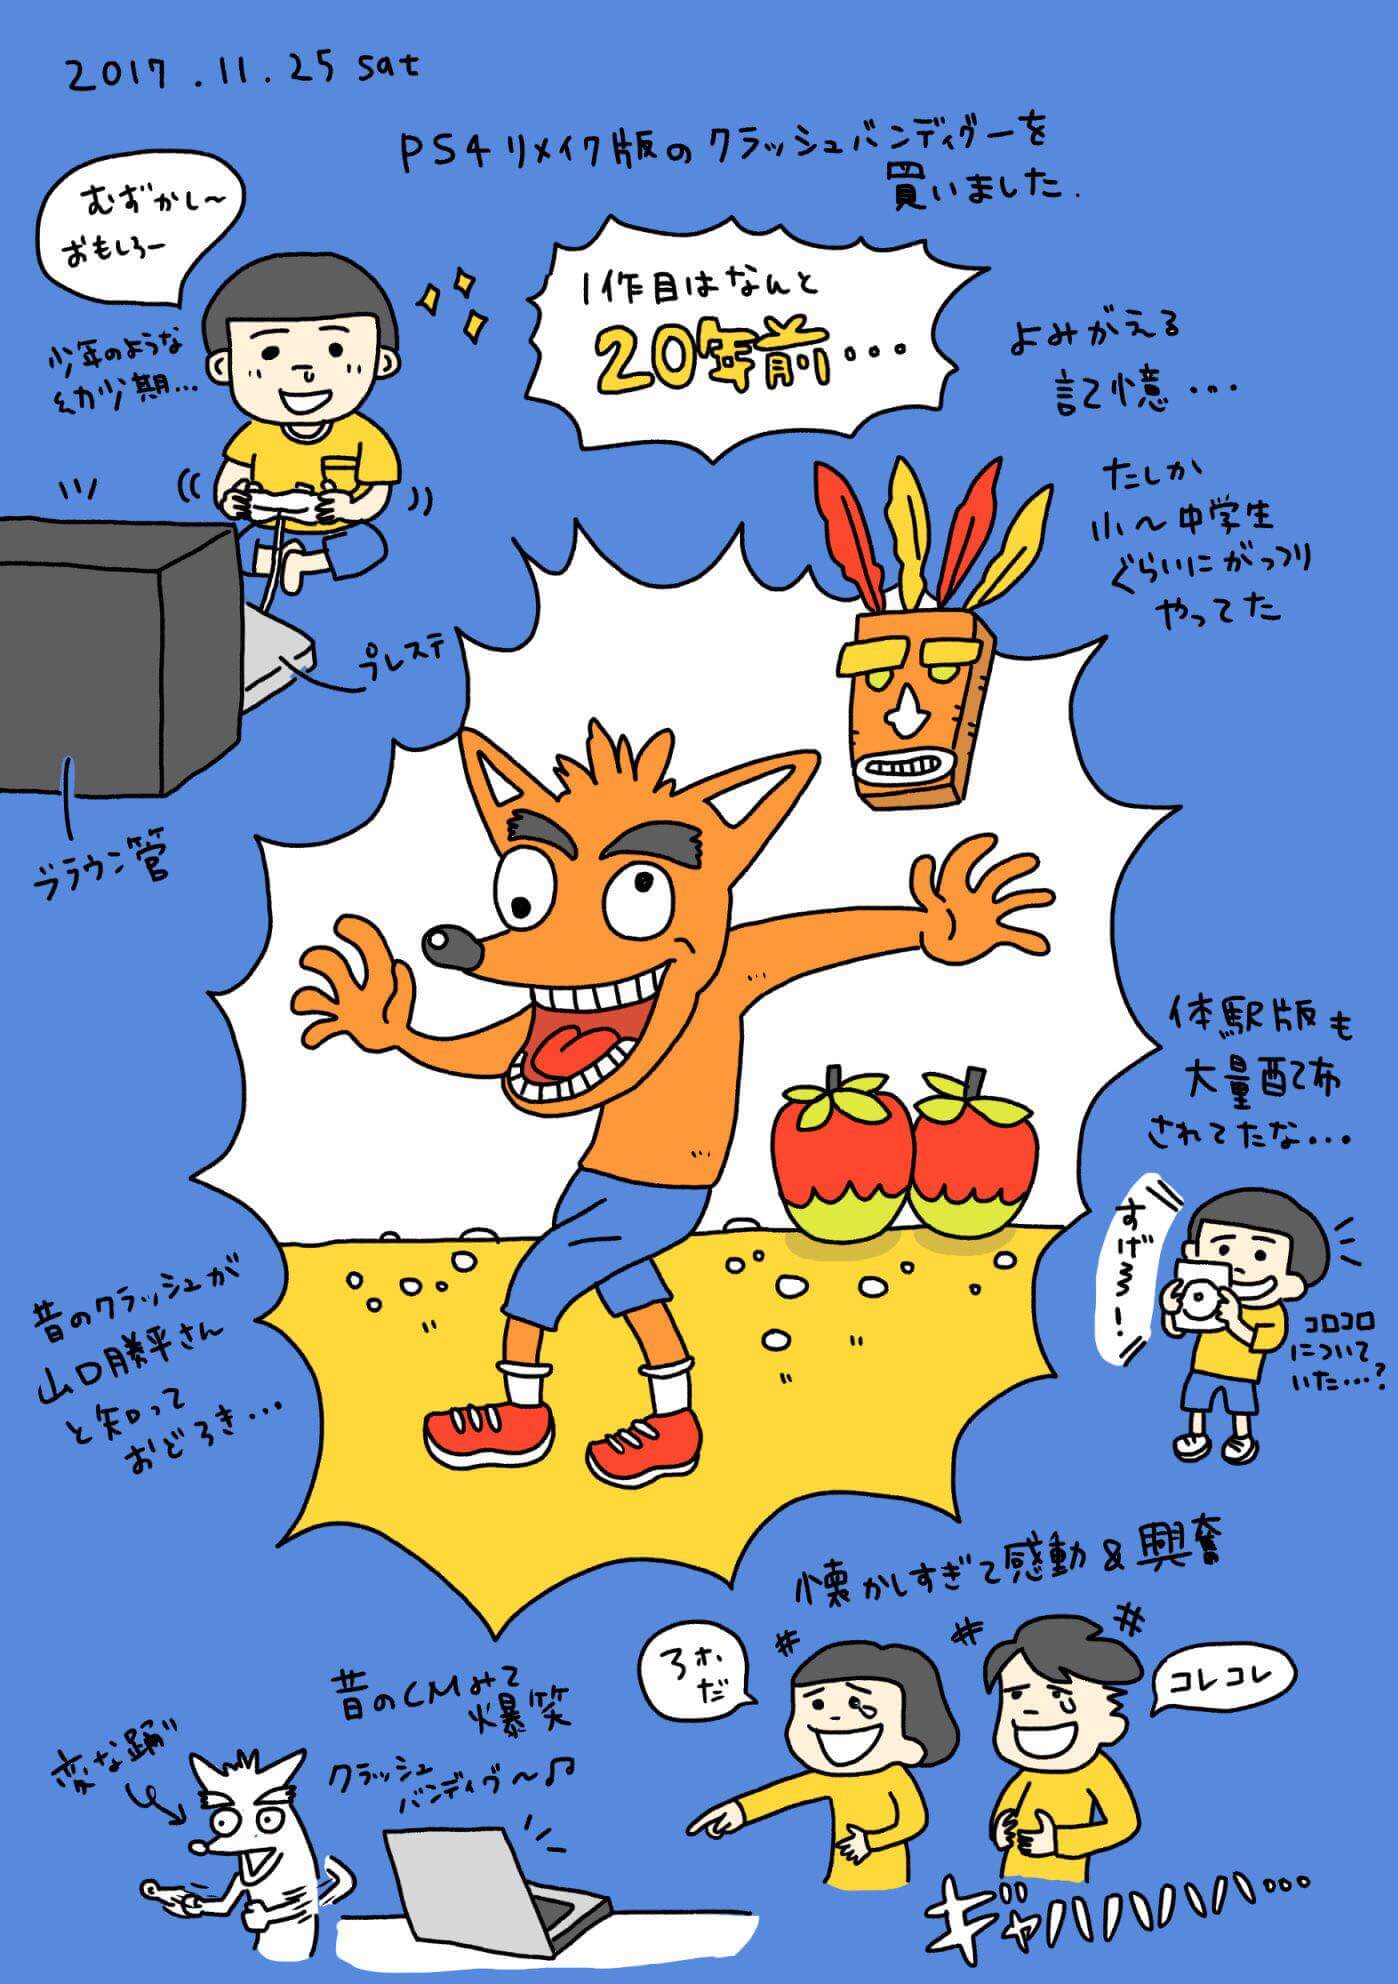 2017.11.25 sat
PS4リメイク版のクラッシュバンディグーを
買いました.
むずかし〜
おもしろー
1作目はなんと
20年前...
少年のような
幼少期...
よみがえる
記憶...
たしか
小〜中学生
ぐらいにがっつり
やってた
プレステ
ブラウン管
体験版も
大量配布
されてたな...
すげぇ!
コロコロ
について
いた...?
昔のクラッシュが
山口勝平さん
と知って
おどろき...
懐かしすぎて感動&興奮
アホ
だ
コレコレ
昔のCMみて
爆笑
変な踊り
クラッシュ
バンディグ〜♫
ギャハハハハハ...